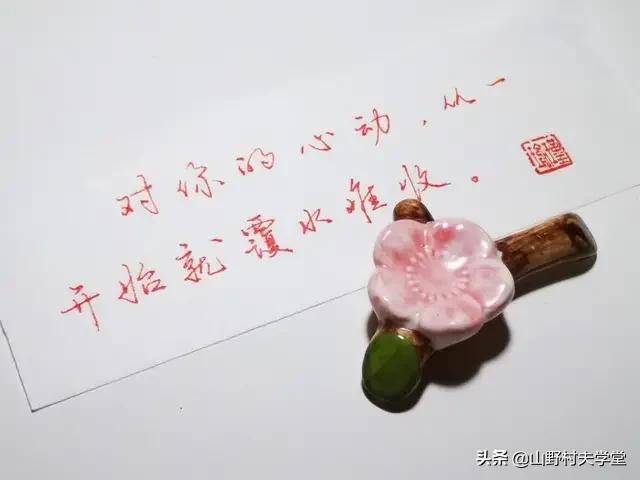 对你的心动，从一
开始就覆水难收。
头条 @山野村夫学堂